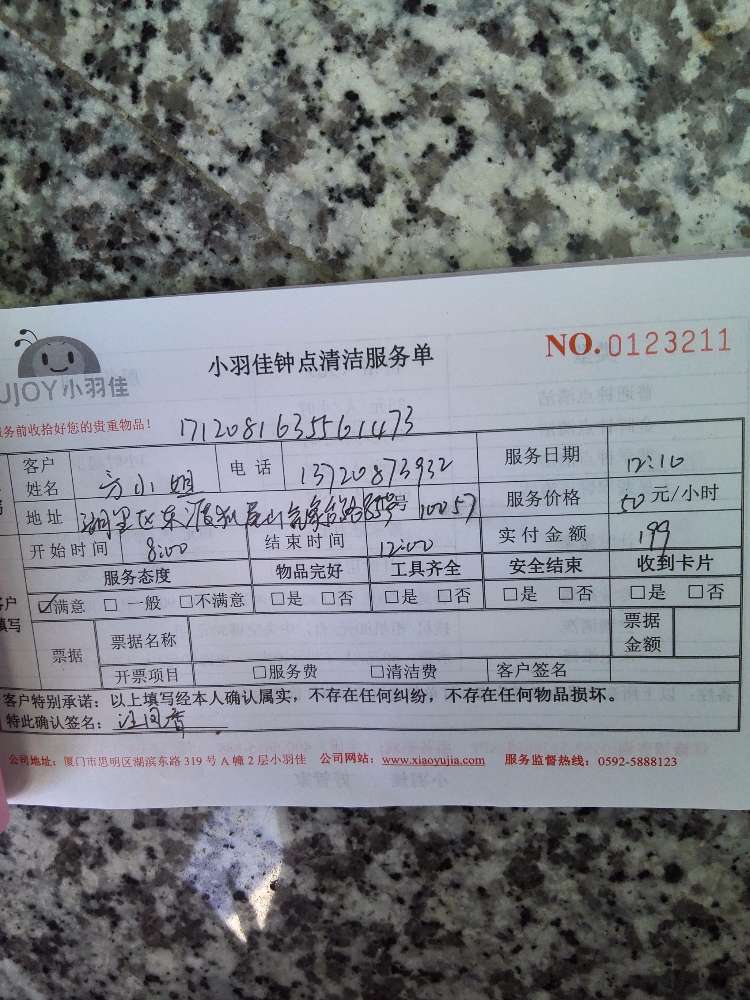 小羽佳钟点清洁服务单
NO.0123211
UJOY小羽佳
务前收拾好您的贵重物品！ 17120816355561473
客户姓名 方小姐 电话 13720873932 服务日期 12:10
地址 湖里区东渡 号 10057 服务价格 50元/小时
开始时间 8:00 结束时间 12:00 实付金额 199
服务态度 物品完好 工具齐全 安全结束 收到卡片
☑满意 □一般 □不满意 □是 □否 □是 □否 □是 □否 □是 □否
客户填写
票据 票据名称 票据金额
开票项目 □服务费 □清洁费 客户签名
客户特别承诺：以上填写经本人确认属实，不存在任何纠纷，不存在任何物品损坏。
特此确认签名：
公司地址：厦门市思明区湖滨东路319号A幢2层小羽佳 公司网站：www.xiaoyujia.com 服务监督热线：0592-5888123